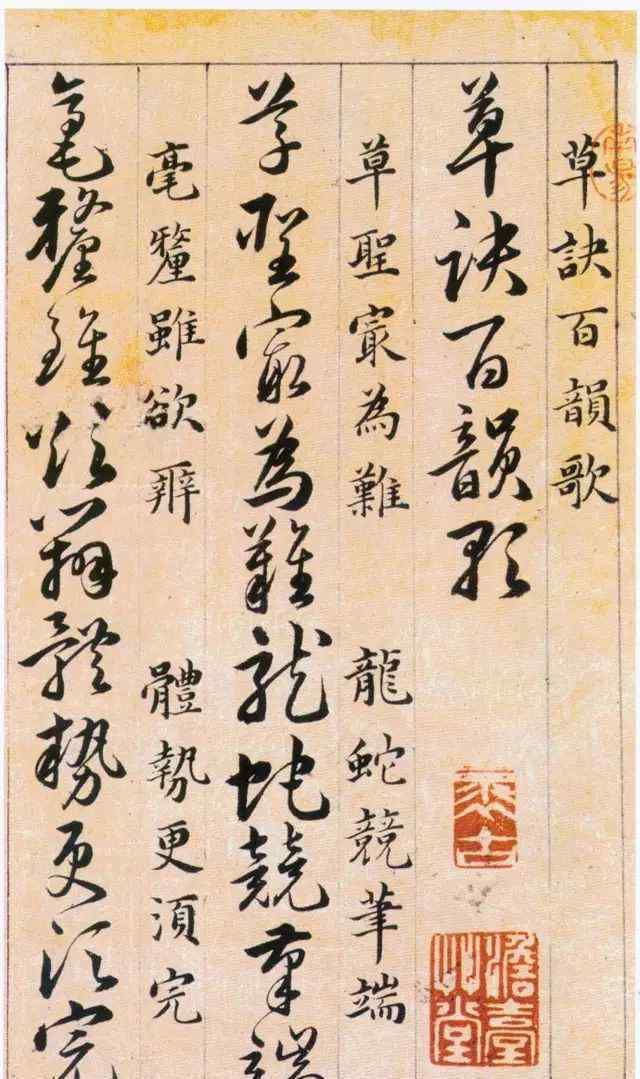 草訣百韻歌
草訣百韻歌
草聖㝡為難 龍蛇競筆端
草聖㝡為難龍蛇競筆端
毫釐雖欲辨 體勢更須完
毫釐雖欲辨體勢更須完